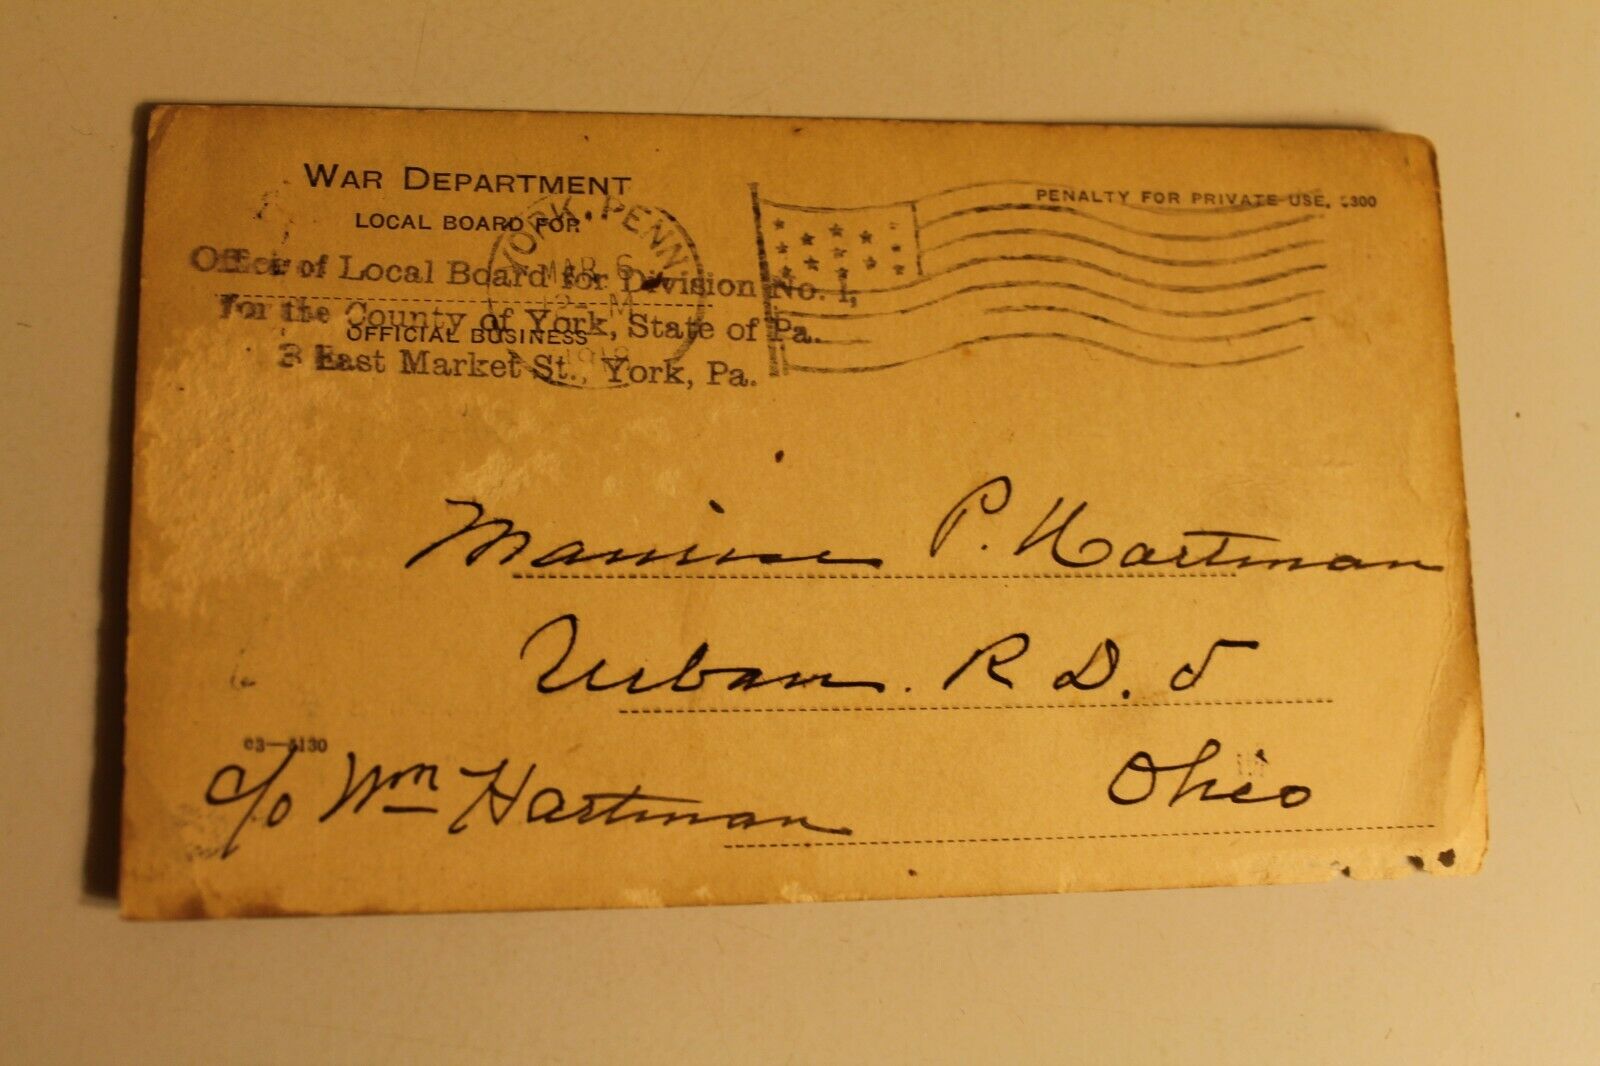 WAR DEPARTMENT
LOCAL BOARD FOR
PENALTY FOR PRIVATE USE, $300
YORK, PENN
MAR 6
12 M
1918
Office of Local Board for Division No. 1,
for the County of York, State of Pa.
OFFICIAL BUSINESS
3 East Market St., York, Pa.
P. Hartman
Urbana R.D. 5
c3-4130
c/o Wm Hartman
Ohio